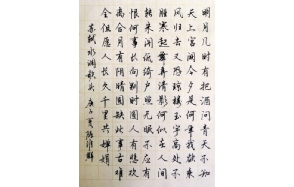 明月几时有把酒问青天不知
天上宫阙今夕是何年我欲乘
风归去又恐琼楼玉宇高处不
胜寒起舞弄清影何似在人间
转朱阁低绮户照无眠不应有
恨何事长向别时圆人有悲欢
离合月有阴晴圆缺此事古难
全但愿人长久千里共婵娟
苏轼水调歌头 庚子夏